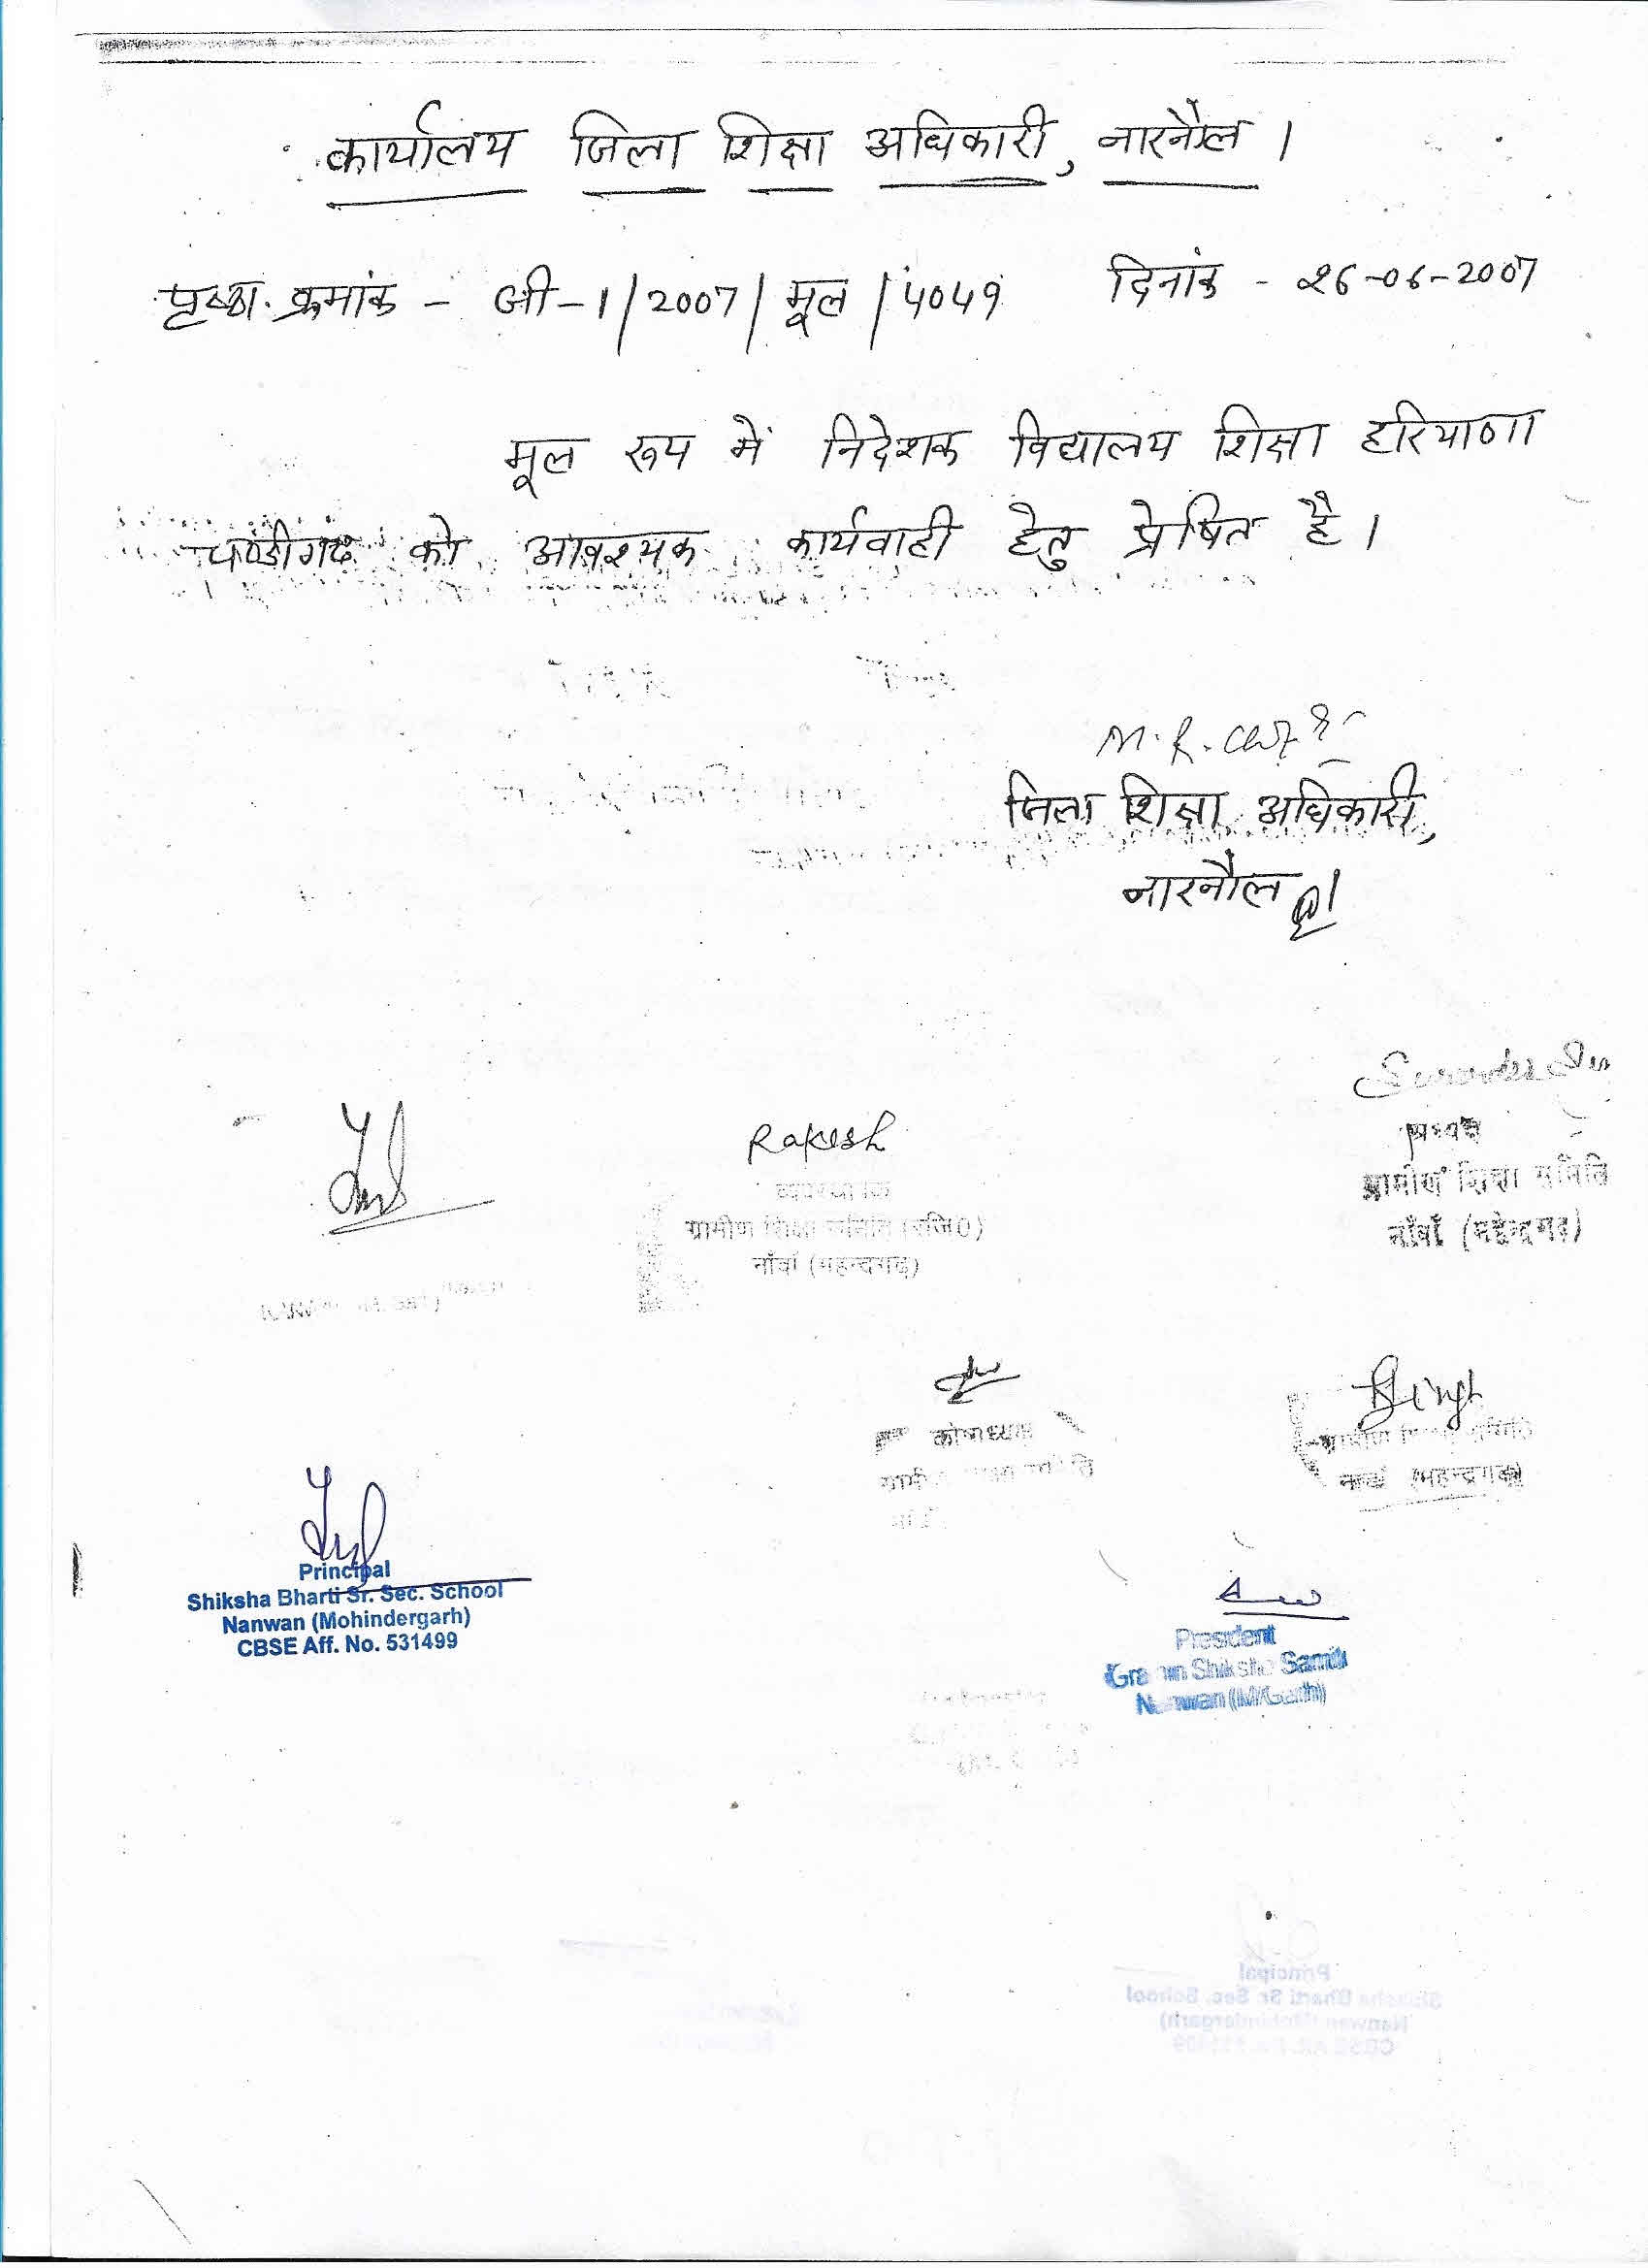 कार्यालय जिला शिक्षा अधिकारी, नारनौल ।
पृष्ठा. क्रमांक - जी-1/2007/मूल/4049 दिनांक - 26-06-2007
मूल रूप में निदेशक विद्यालय शिक्षा हरियाणा
चण्डीगढ़ को आवश्यक कार्यवाही हेतु प्रेषित है ।
जिला शिक्षा अधिकारी,
नारनौल ।
Rakesh
व्यवस्थापक
ग्रामीण शिक्षा समिति (रजि0)
नाँवां (महेन्द्रगढ़)
ग्रामीण शिक्षा समिति
नाँवाँ (महेन्द्रगढ़)
कोषाध्यक्ष
Singh
ग्रामीण शिक्षा समिति
नावां (महेन्द्रगढ़)
Principal
Shiksha Bharti Sr. Sec. School
Nanwan (Mohindergarh)
CBSE Aff. No. 531499
President
Gramin Shiksha Samiti
Nanwan (M/Garh)